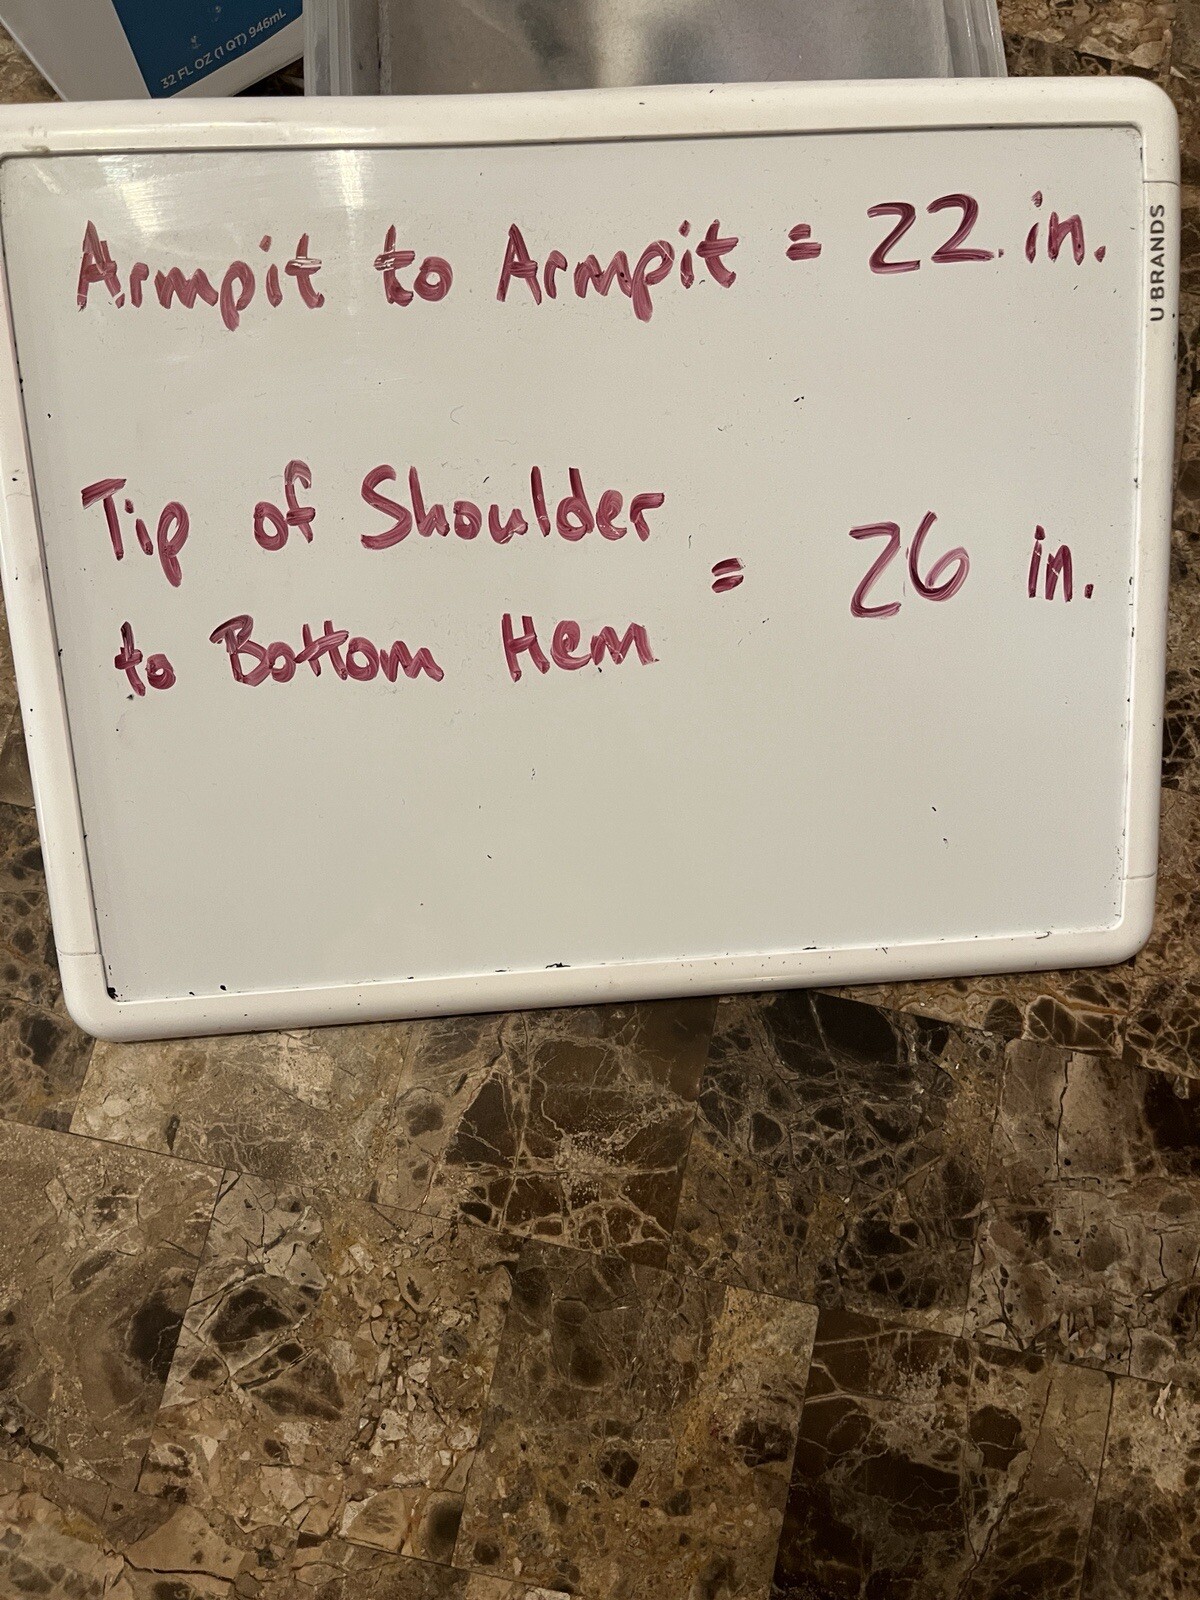 32 FL OZ (1 QT) 946mL
U BRANDS
Armpit to Armpit = 22 in.
Tip of Shoulder
to Bottom Hem = 26 in.